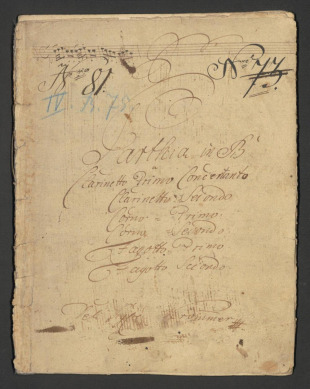 Nro 81. Nro 73.
IV
Parthia in B
Clarinetto Primo Concertanto
Clarinetto Secondo
Corno Primo
Corno Secondo
Fagotto Primo
Fagotto Secondo
Del Sig